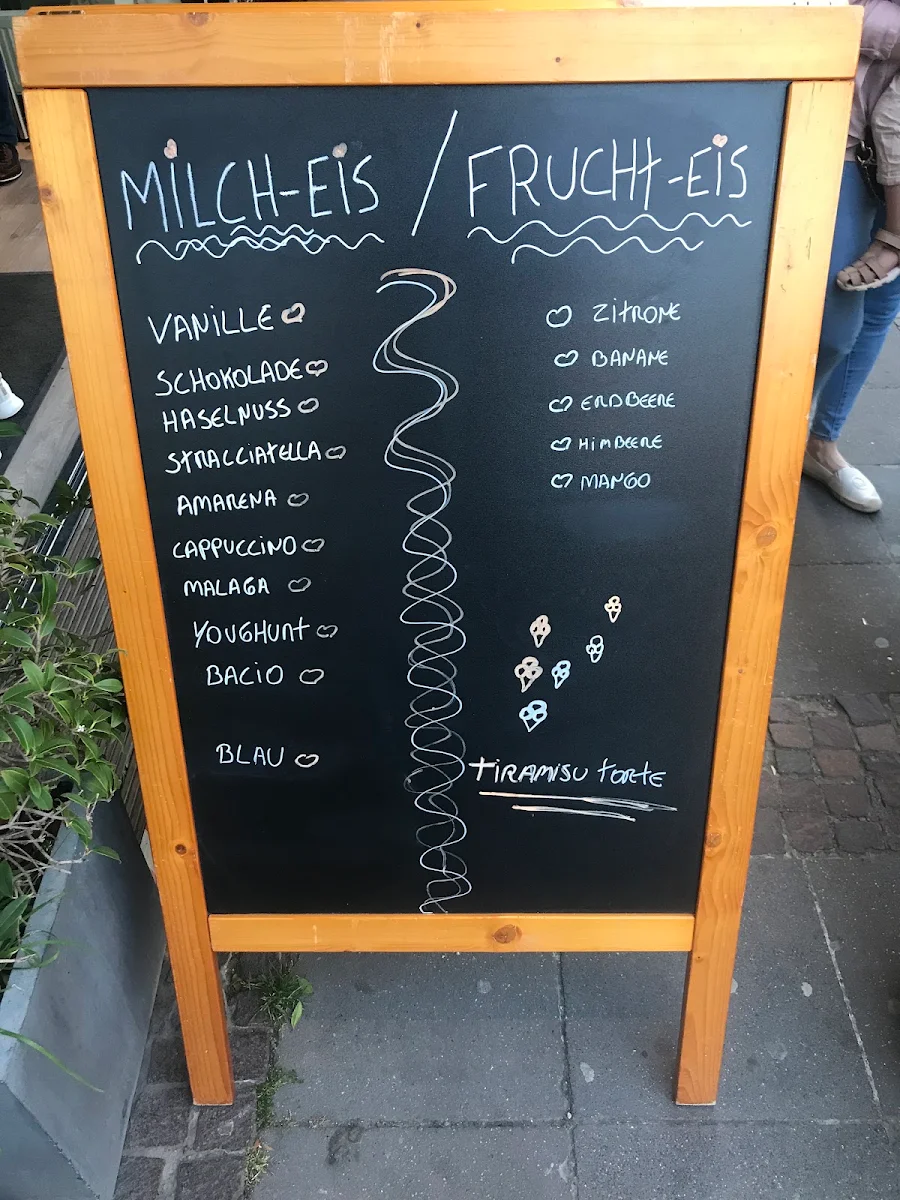 MiLCH-EiS / FRUCHt-EiS
VANiLLE
SCHOKOLADE
HASELNUSS
StRACCiAtELLA
AMARENA
CAPPUCCiNO
MALAGA
YOUGHURt
BACiO
BLAU
ZitRONE
BANANE
ERDBEERE
HiMBEERE
MANGO
tiRAMiSU tORtE